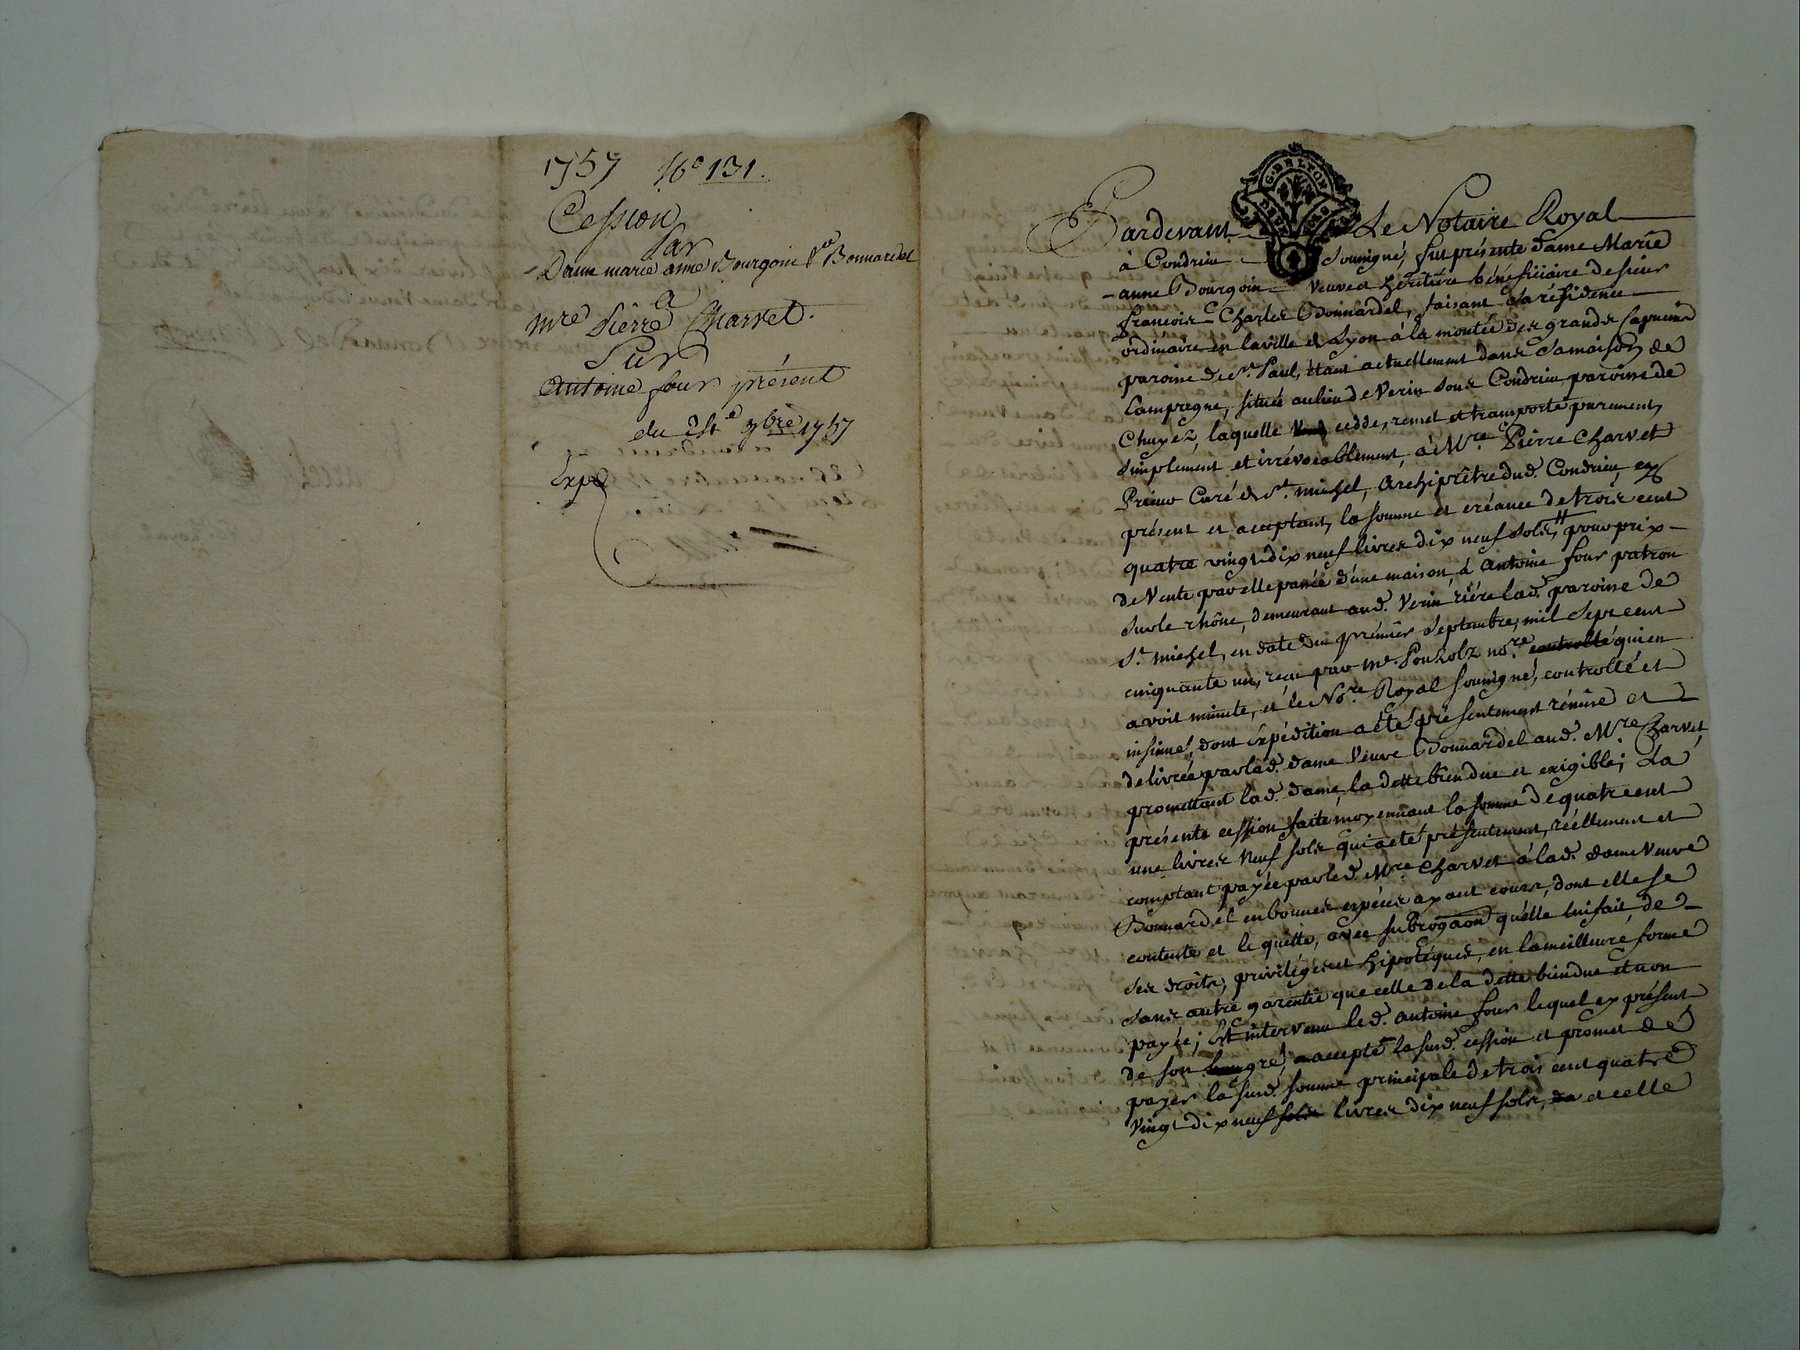 1757 No 131.
Cession
Par
Dame marie anne Bourgoin Ve Bonnardel
a
Mre Pierre Charvet.
Sur
Antoine four présent
du 24e 9bre 1757
Expé
G. DE LYON
Pardevant Le Notaire Royal
à Condrieu soussigné, fut présente dame Marie
anne Bourgoin veuve et héritière bénéficiaire de sieur
francois Charles Bonnardel, faisant sa résidence
ordinaire en la ville de Lyon à la montée des grands Capucins
paroisse de st. Paul, étant actuellement dans sa maison de
Campagne, située au lieu de Verin sous Condrieu paroisse de
Chuyez, laquelle cedde, remet et transporte purement,
simplement et irrévocablement, à Mre Pierre Charvet
Prieur Curé de St. michel, Archiprêtre dud. Condrieu, cy
présent et acceptant, la somme et créance de trois cent
quatre vingt dix neuf livres dix neuf sols, pour prix
de Vente par elle passée d'une maison, à Antoine four patron
sur le rhône, demeurant aud. Verin rière lad. paroisse de
St. michel, en date du prémier Septembre, mil sept cent
cinquante un, reçu par me. Pouzolz nore. controllé qui en
a voit minute, et le Nore. Royal soussigné, controllé et
insinué, dont éxpédition a été présentement rémise et
delivrée par lad. dame Veuve Bonnardel aud. Mre Charvet
promettant lad. dame, la dette bien due et exigible; La
présente cession faite moyennant la somme de quatre cent
une livres Neuf sols qui a été présentement, réellement et
comptant payée par led. Mre. Charvet à lad. dame Veuve
Bonnardel en bonnes espéces ayant cours, dont elle se
contente et le quitte, avec subrogaon qu'elle lui fait de
ses droits, priviléges et hipotéques, en la meilleure forme
sans autre garentie que celle de la dette bien due et non
payée; Est intervenu led. Antoine four lequel cy présent
de son gré, a accepté la susd. cession et promet de
payer la susd. somme principale de trois cent quatre
vingt dix neuf sols livres dix neuf sols, et celle